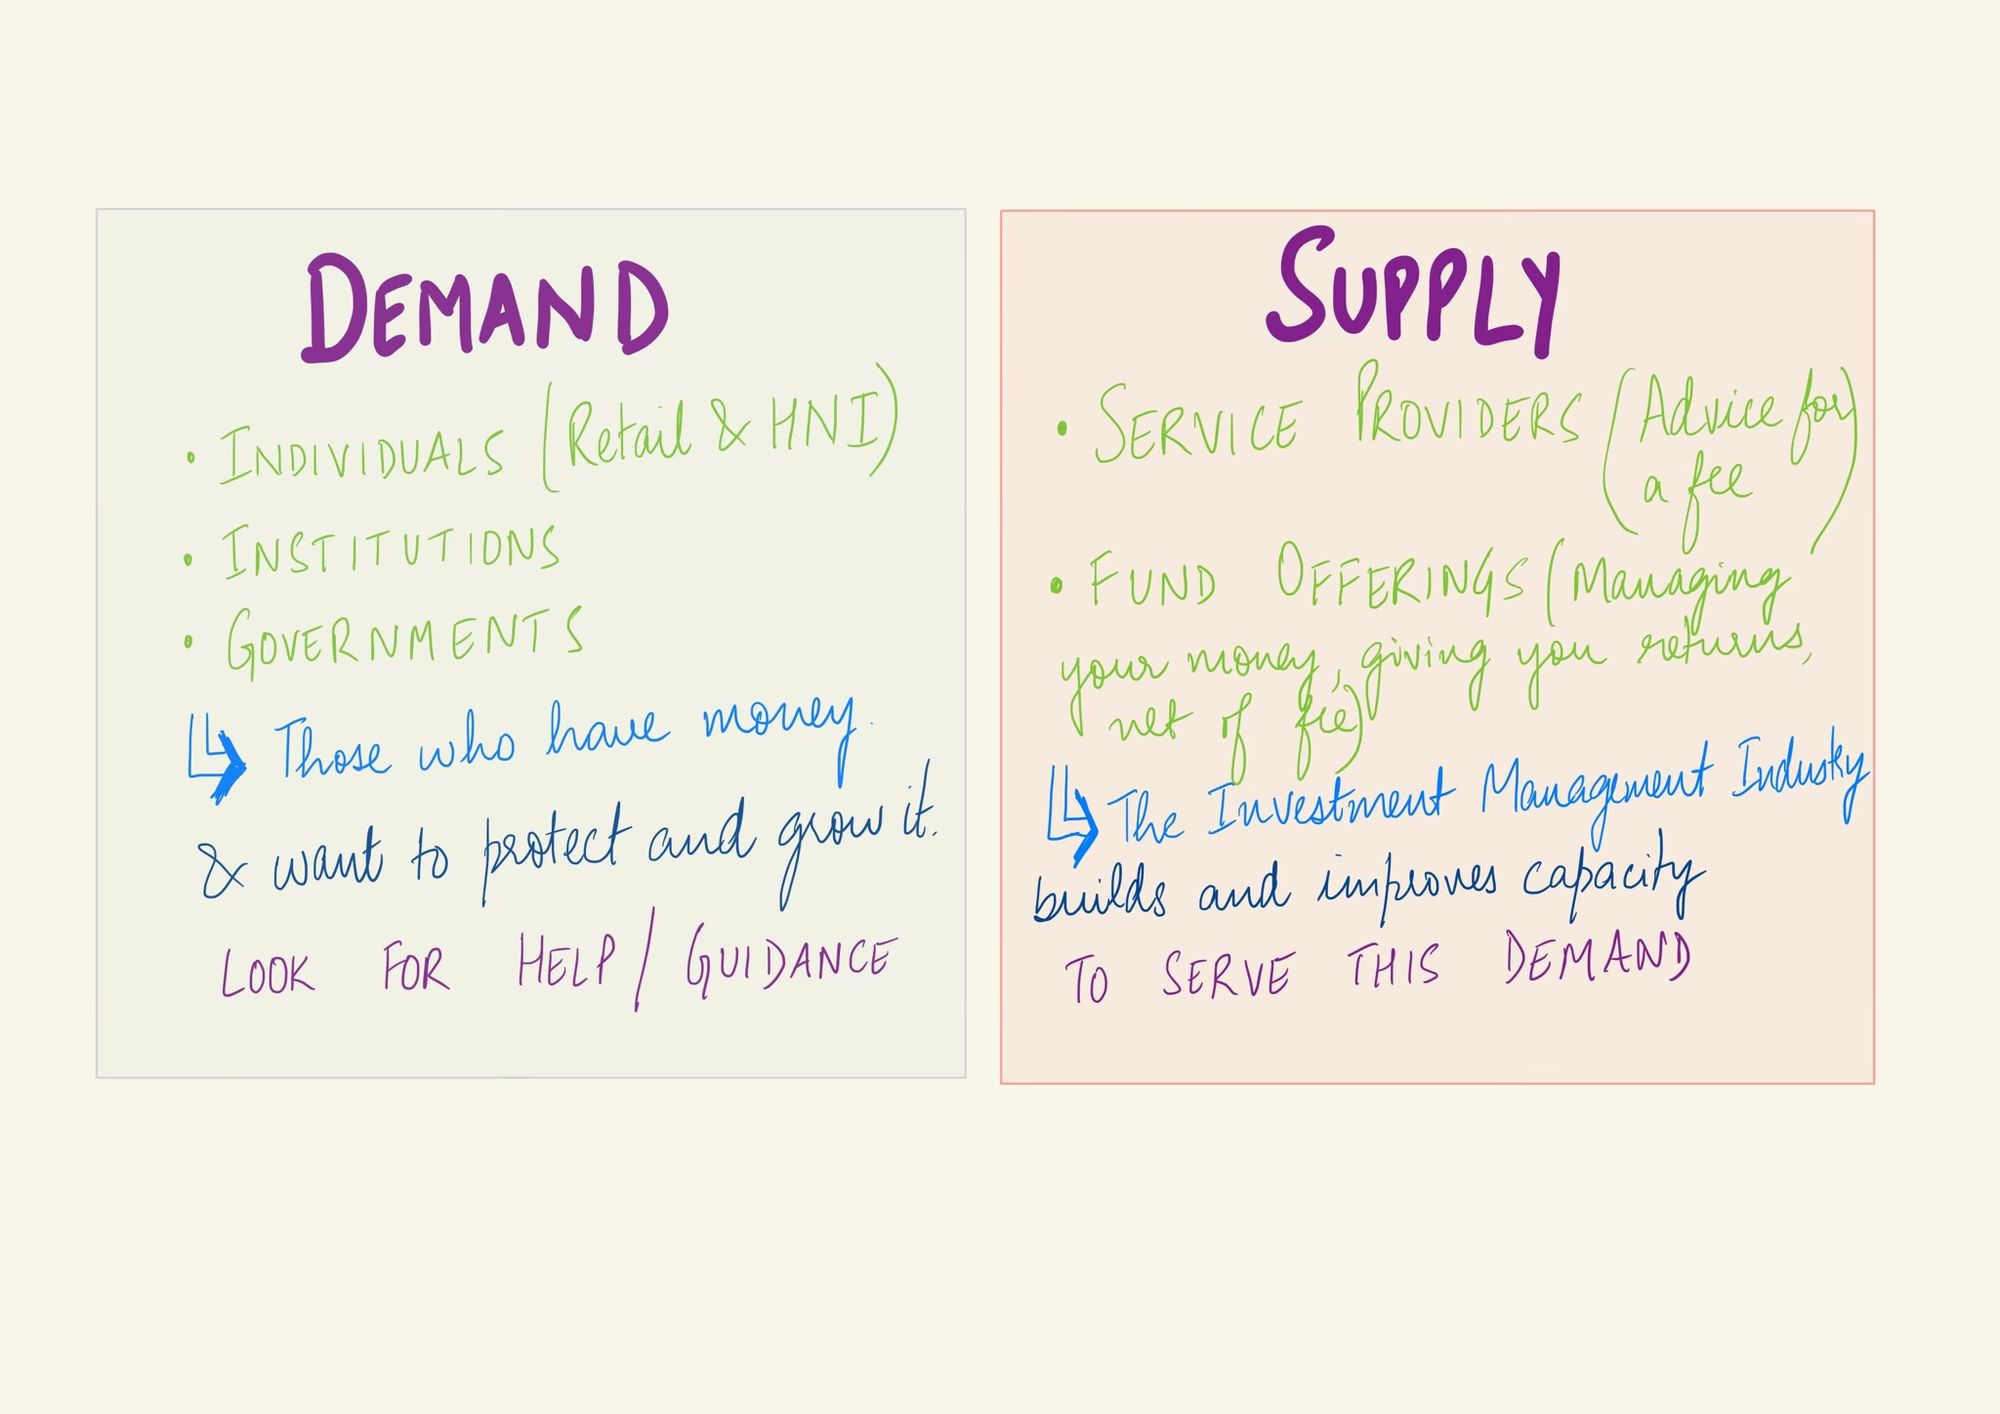 DEMAND
• INDIVIDUALS (Retail & HNI)
• INSTITUTIONS
• GOVERNMENTS
↳ Those who have money.
& want to protect and grow it.
LOOK FOR HELP / GUIDANCE
SUPPLY
• SERVICE PROVIDERS (Advice for
a fee)
• FUND OFFERINGS (Managing
your money, giving you returns,
net of fee)
↳ The Investment Management Industry
builds and improves capacity
TO SERVE THIS DEMAND